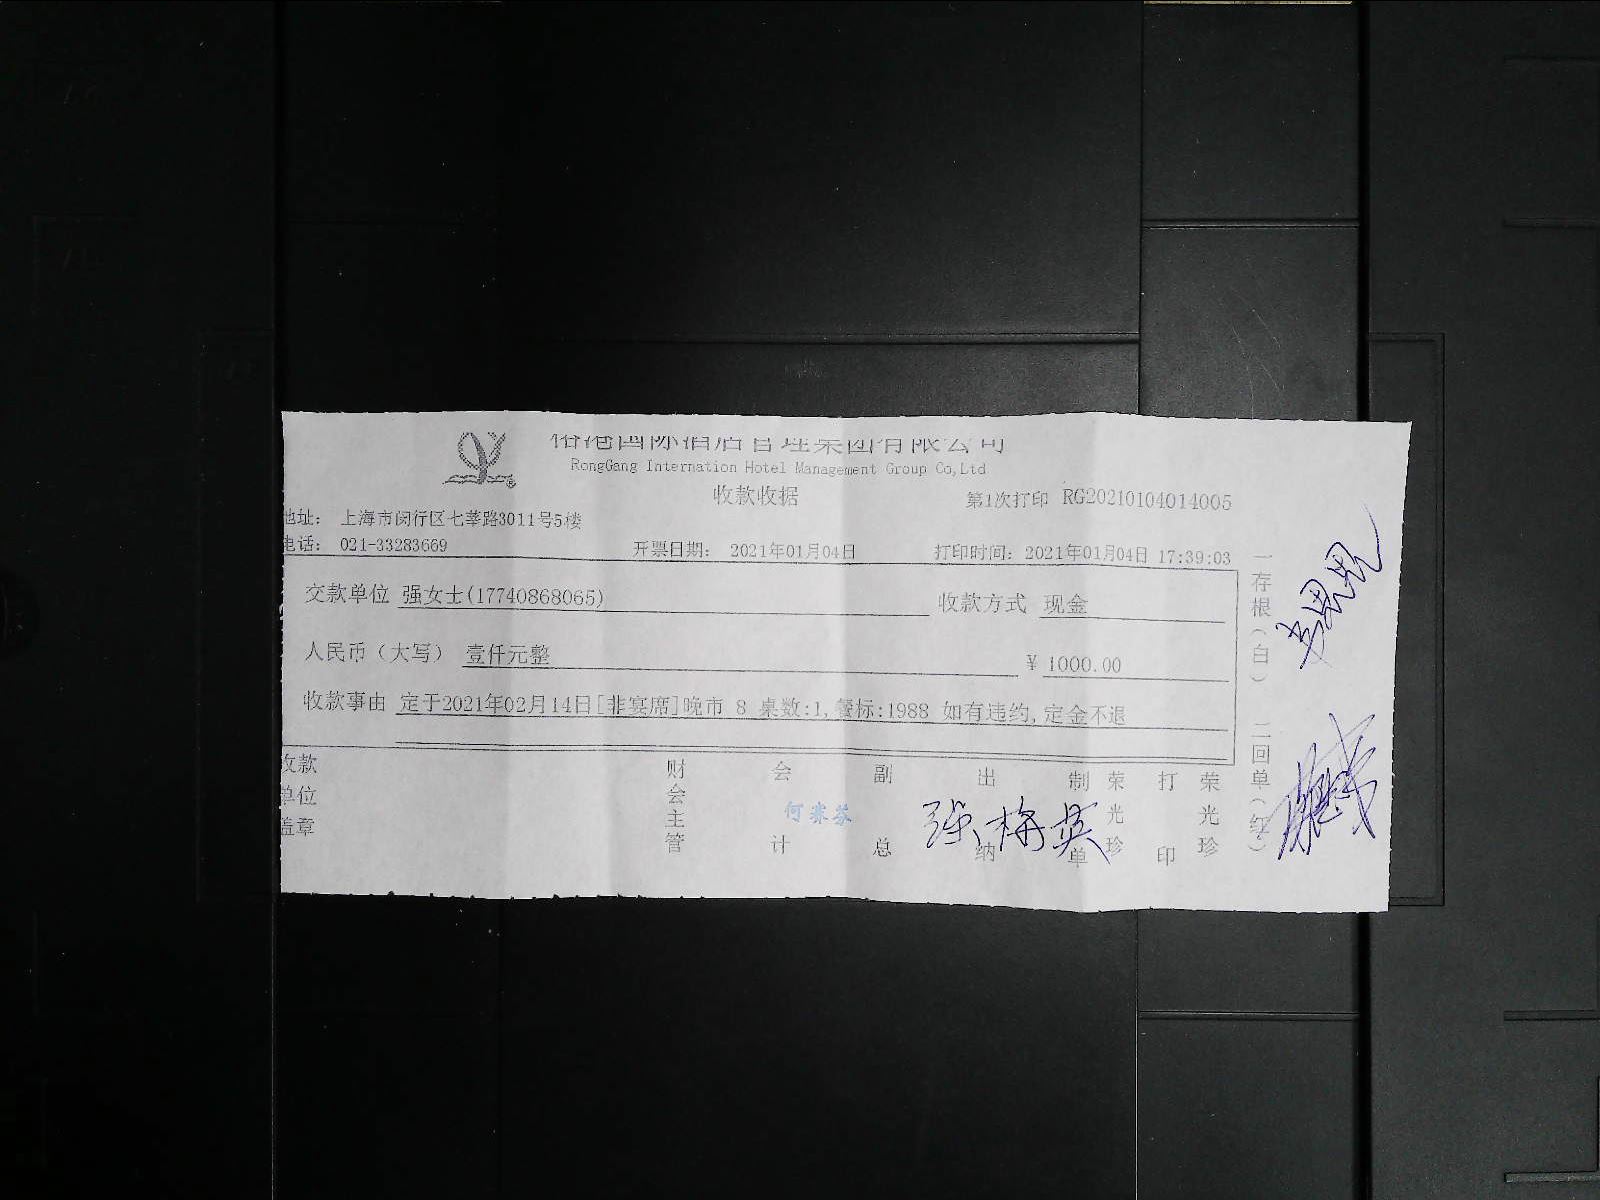 国际酒店管理集团有限公司
RongGang Internation Hotel Management Group Co,Ltd
收款收据
第1次打印 RG20210104014005
地址： 上海市闵行区七莘路3011号5楼
电话： 021-33283669
开票日期： 2021年01月04日
打印时间：2021年01月04日 17:39:03
交款单位 强女士(17740868065)
收款方式 现金
人民币（大写） 壹仟元整
¥ 1000.00
收款事由 定于2021年02月14日[非宴席]晚市 8 桌数:1,餐标:1988 如有违约,定金不退
收款单位盖章
财会主管
会计
何赛芬
副总
出纳
强梅英
制单
荣光珍
打印
荣光珍
一存根（白） 二回单（红）